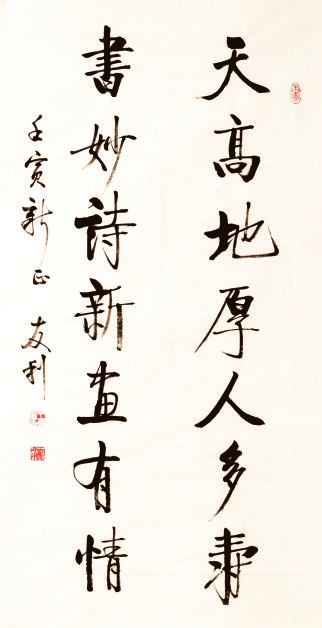 天髙地厚人多寿
書妙詩新畫有情
壬寅新正 友利